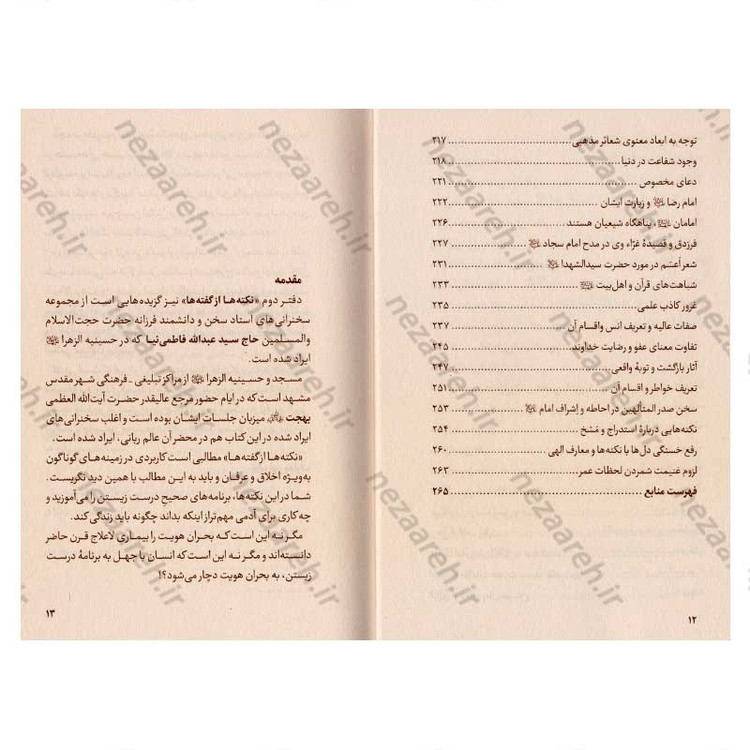 توجه به ابعاد معنوی شعائر مذهبی ........ ۲۱۷
وجود شفاعت در دنیا ........ ۲۱۸
دعای مخصوص ........ ۲۲۱
امام رضا ﷷ و زیارت ایشان ........ ۲۲۲
امامان ﷷ، پناهگاه شیعیان هستند ........ ۲۲۶
فرزدق و قصیدهٔ غرّاء وی در مدح امام سجاد ........ ۲۲۷
شعر أعثم در مورد حضرت سیدالشهدا ........ ۲۳۱
شباهت‌های قرآن و اهل‌بیت ........ ۲۳۳
غرور کاذب علمی ........ ۲۳۵
صفات عالیه و تعریف انس و اقسام آن ........ ۲۳۷
تفاوت معنای عفو و رضایت خداوند ........ ۲۴۵
آثار بازگشت و توبهٔ واقعی ........ ۲۴۷
تعریف خواطر و اقسام آن ........ ۲۵۱
سخن صدر المتألهین در احاطه و إشراف امام ........ ۲۵۳
نکته‌هایی دربارهٔ استدراج و مَسْخ ........ ۲۵۴
رفع خستگی دل‌ها با نکته‌ها و معارف الهی ........ ۲۶۰
لزوم غنیمت شمردن لحظات عمر ........ ۲۶۲
فهرست منابع ........ ۲۶۵
۱۲
مقدمه
دفتر دوم «نکته‌ها از گفته‌ها» نیز گزیده‌هایی است از مجموعه
سخنرانی های استاد سخن و دانشمند فرزانه حضرت حجت‌الاسلام
والمسلمین حاج سید عبدالله فاطمی‌نیا که در حسینیه الزهرا
ایراد شده است.
مسجد و حسینیه الزهرا از مراکز تبلیغی ـ فرهنگی شهر مقدس
مشهد است که در ایام حضور مرجع عالیقدر حضرت آیت‌الله العظمی
بهجت میزبان جلسات ایشان بوده است و اغلب سخنرانی های
ایراد شده در این کتاب هم در محضر آن عالم ربانی، ایراد شده است.
«نکته‌ها از گفته‌ها» مطالبی است کاربردی در زمینه‌های گوناگون
به‌ویژه اخلاق و عرفان و باید به این مطالب با همین دید نگریست.
شما در این نکته‌ها، برنامه‌های صحیحِ درست زیستن را می‌آموزید و
چه کاری برای آدمی مهم‌تر از اینکه بداند چگونه باید زندگی کند.
مگر نه این است که بحران هویت را بیماری لاعلاج قرن حاضر
دانسته‌اند و مگر نه این است که انسان با جهل به برنامهٔ درست
زیستن، به بحران هویت دچار می‌شود؟!
۱۳
nezaareh.ir